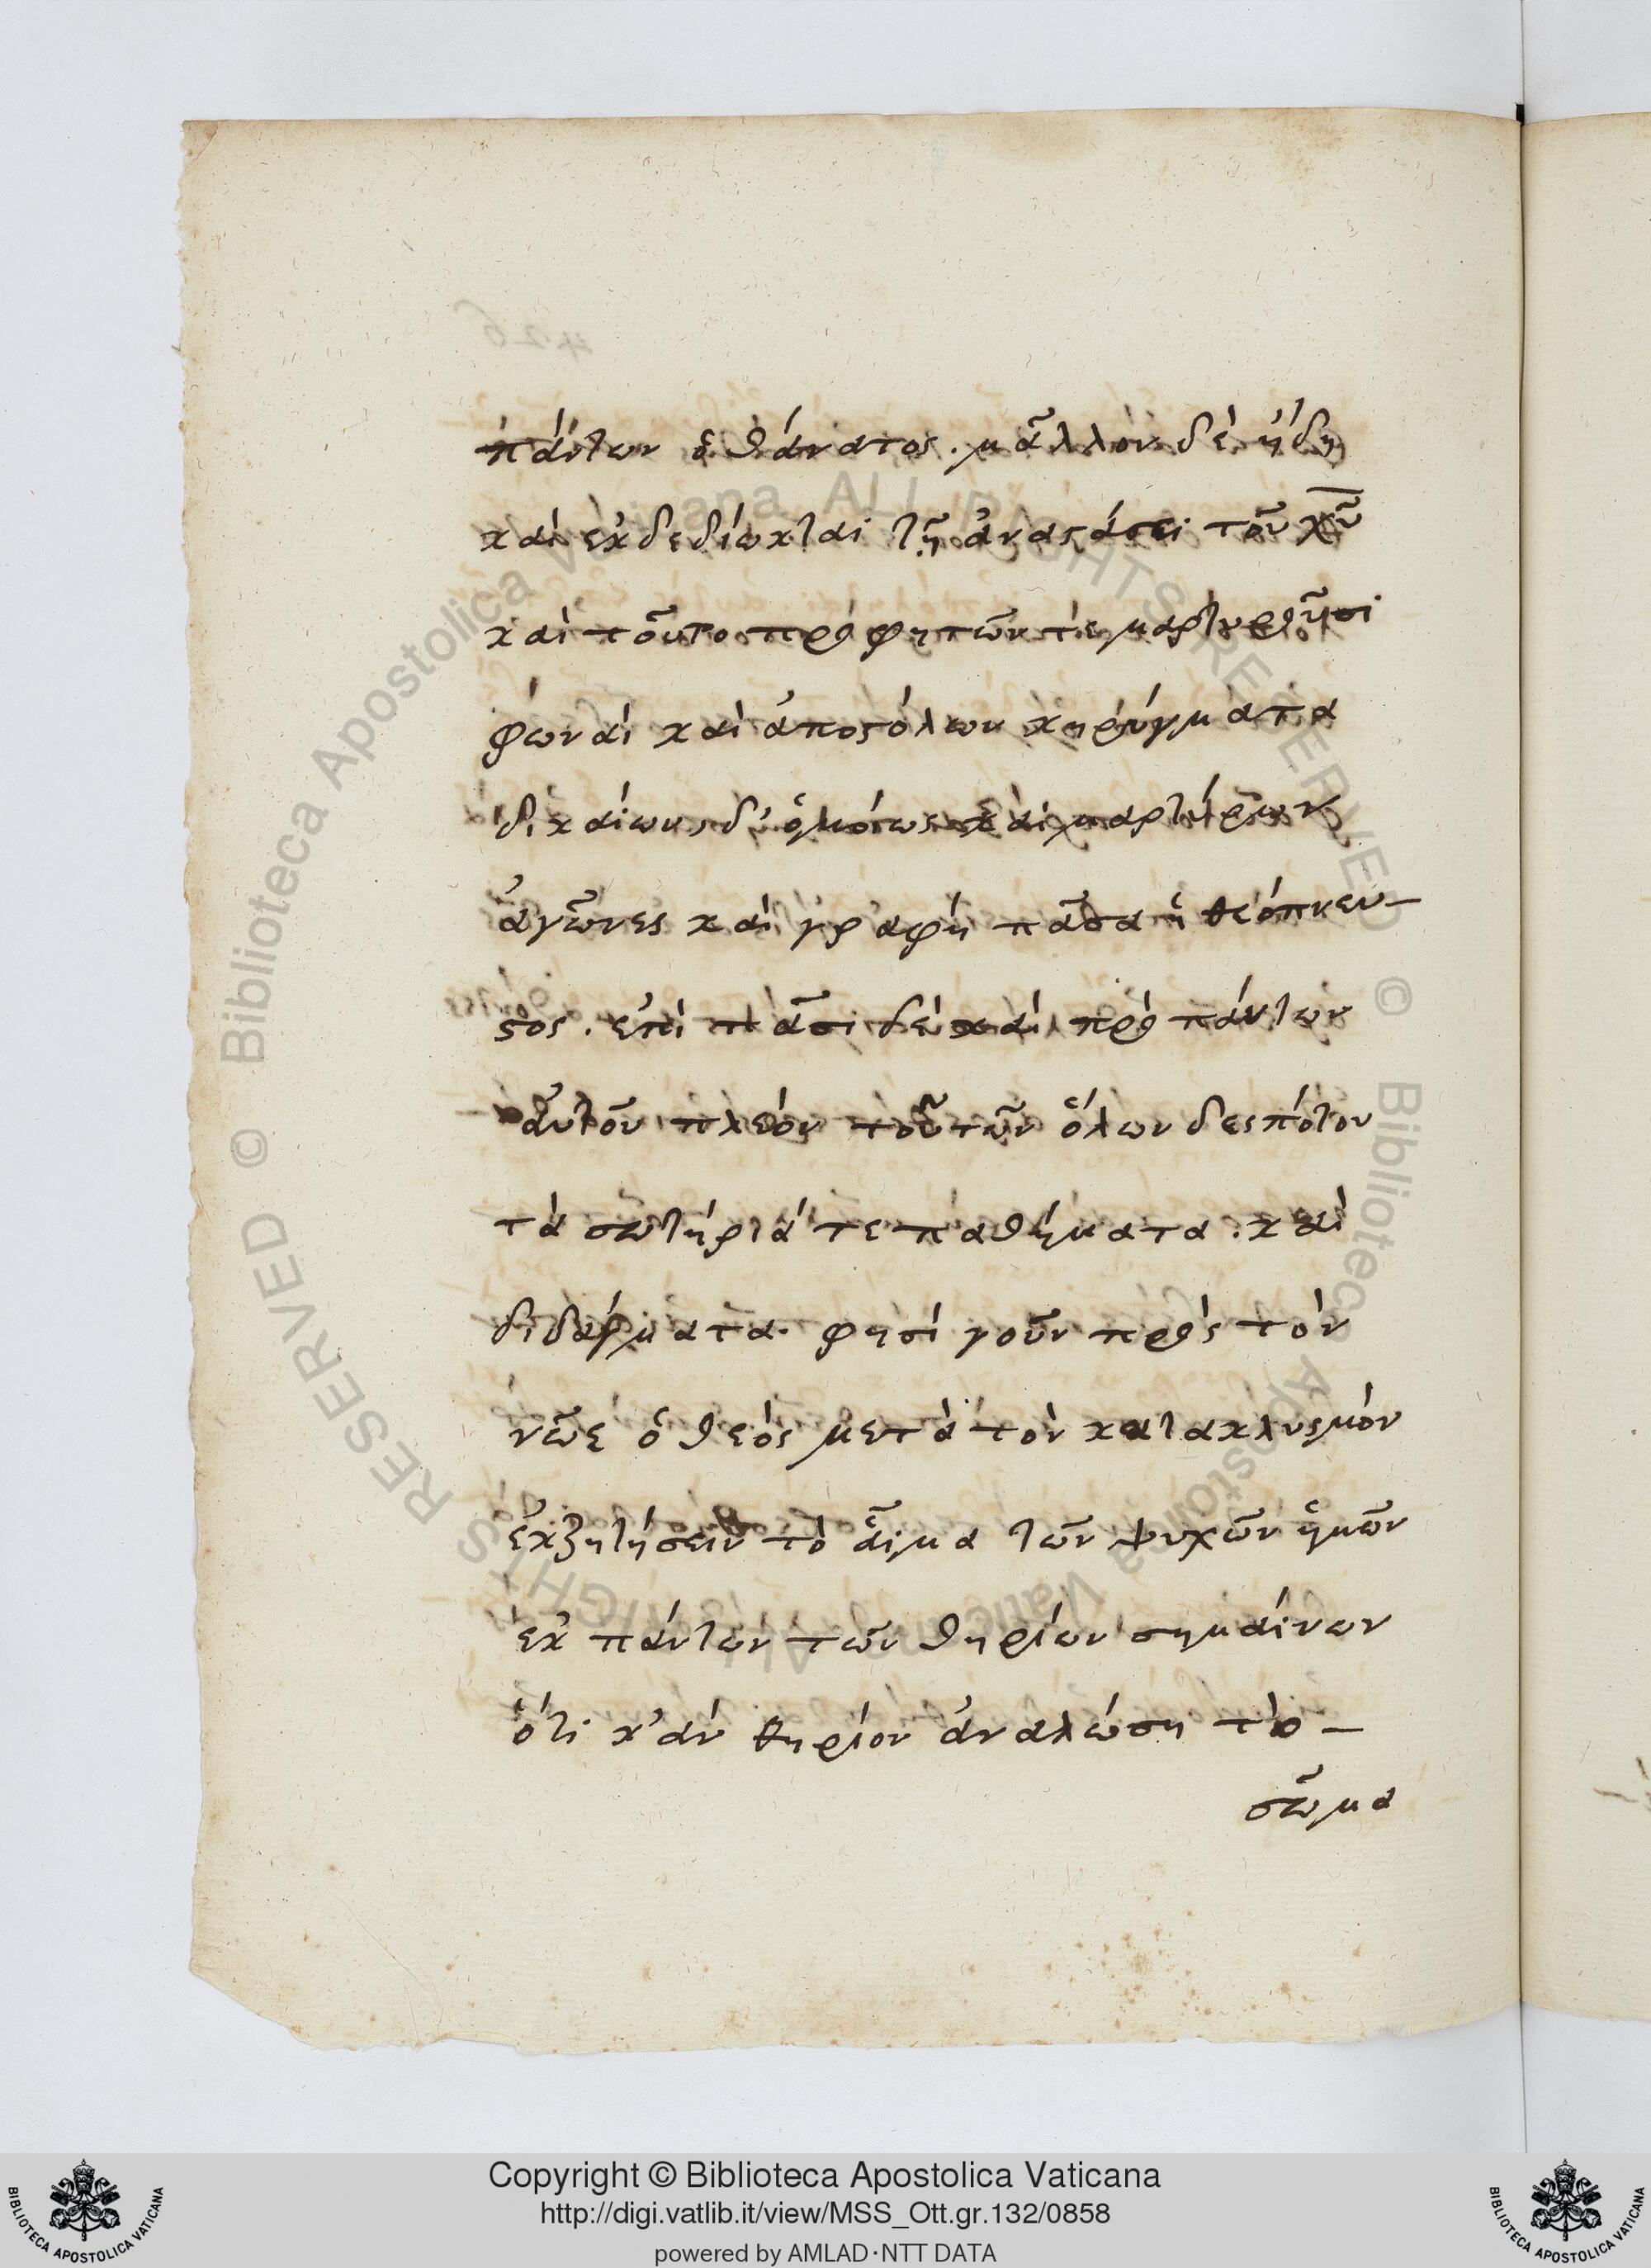 πάντων ὁ θάνατος. μᾶλλον δὲ ἤδη
καὶ ἐκδεδίωκται τῇ ἀναστάσει τοῦ χῦ
καὶ τοῦτο προφητῶν τὲ μαρτυροῦσι
φωναὶ καὶ ἀποστόλων κηρύγματα
δικαίων, δ' ὁμοίως καὶ μαρτύρων
ἀγῶνες καὶ γραφὴ πᾶσα ἡ θεόπνευ-
στος. ἐπὶ πᾶσι δὲ καὶ πρὸ πάντων
αὐτοῦ πλεόν τοῦ τῶν ὅλων δεσπότου
τὰ σωτήριά τε παθήματα. καὶ
διδάγματα. φησὶ γοῦν πρὸς τὸν
νῶε ὁ θεὸς μετὰ τὸν κατακλυσμὸν
ἐκζητήσειν τὸ αἷμα τῶν ψυχῶν ἡμῶν
ἐκ πάντων τῶν θηρίων σημαίνων
ὅτι κ' ἀν θηρίον ἀναλώση τὸ-
σῶμα
426
Copyright © Biblioteca Apostolica Vaticana
http://digi.vatlib.it/view/MSS_Ott.gr.132/0858
powered by AMLAD·NTT DATA
BIBLIOTECA APOSTOLICA VATICANA
BIBLIOTECA APOSTOLICA VATICANA
© Biblioteca Apostolica Vaticana ALL RIGHTS RESERVED
© Biblioteca Apostolica Vaticana ALL RIGHTS RESERVED